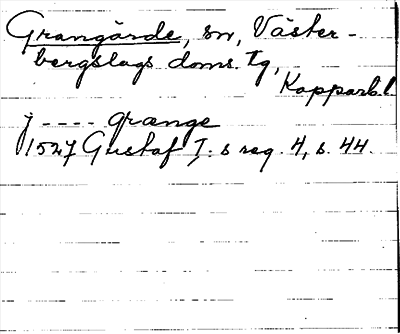 Grangärde, sn, Väster-
bergslags doms. tg,
Kopparb.l
j ---- grange
1527 Gustaf I:s reg. 4, s. 44.